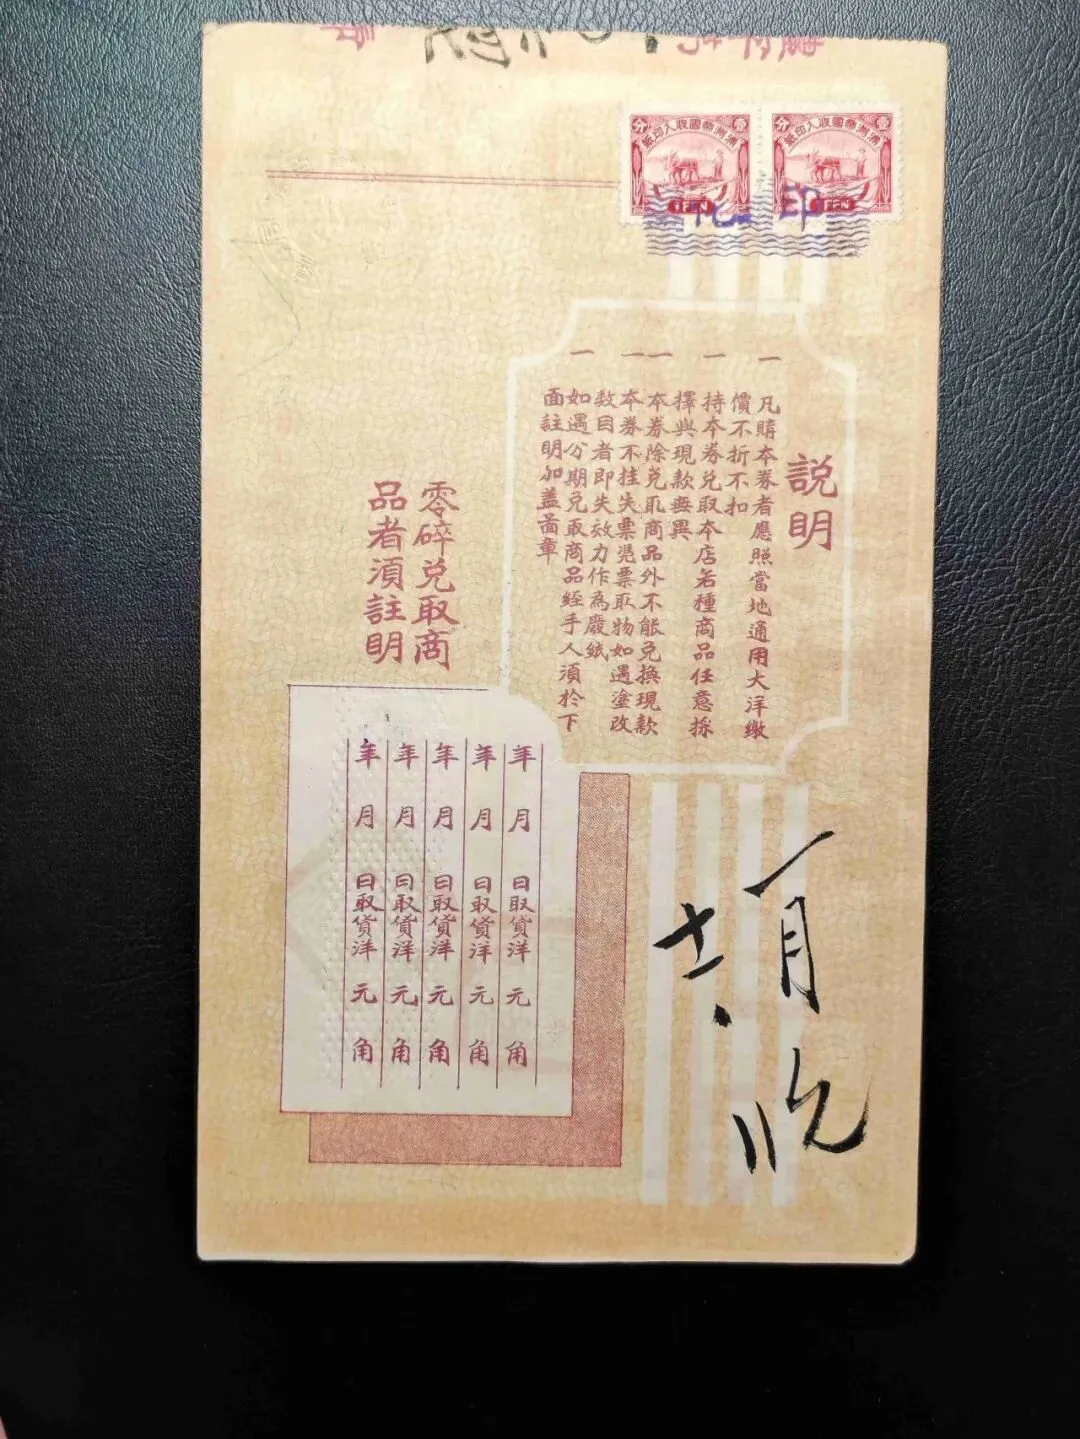 滿洲帝國收入印紙
壹分
1 FEN
滿洲帝國收入印紙
壹分
1 FEN
印花
説明
一 凡購本券者應照當地通用大洋繳
價不折不扣
一 持本券兌取本店各種商品任意採
擇與現款無異
一 本券除兌取商品外不能兌換現款
一 本券不挂失票凴票取物如遇塗改
数目者即失效力作為廢紙
一 如遇分期兌取商品經手人須於下
面註明加蓋圖章
零碎兌取商
品者須註明
年月日取貨洋元角
年月日取貨洋元角
年月日取貨洋元角
年月日取貨洋元角
年月日取貨洋元角